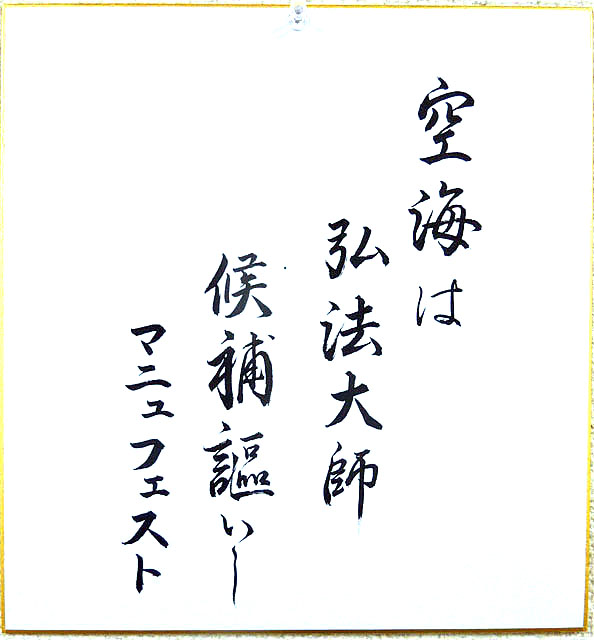 空海は
弘法大師
候補謳いし
マニュフェスト